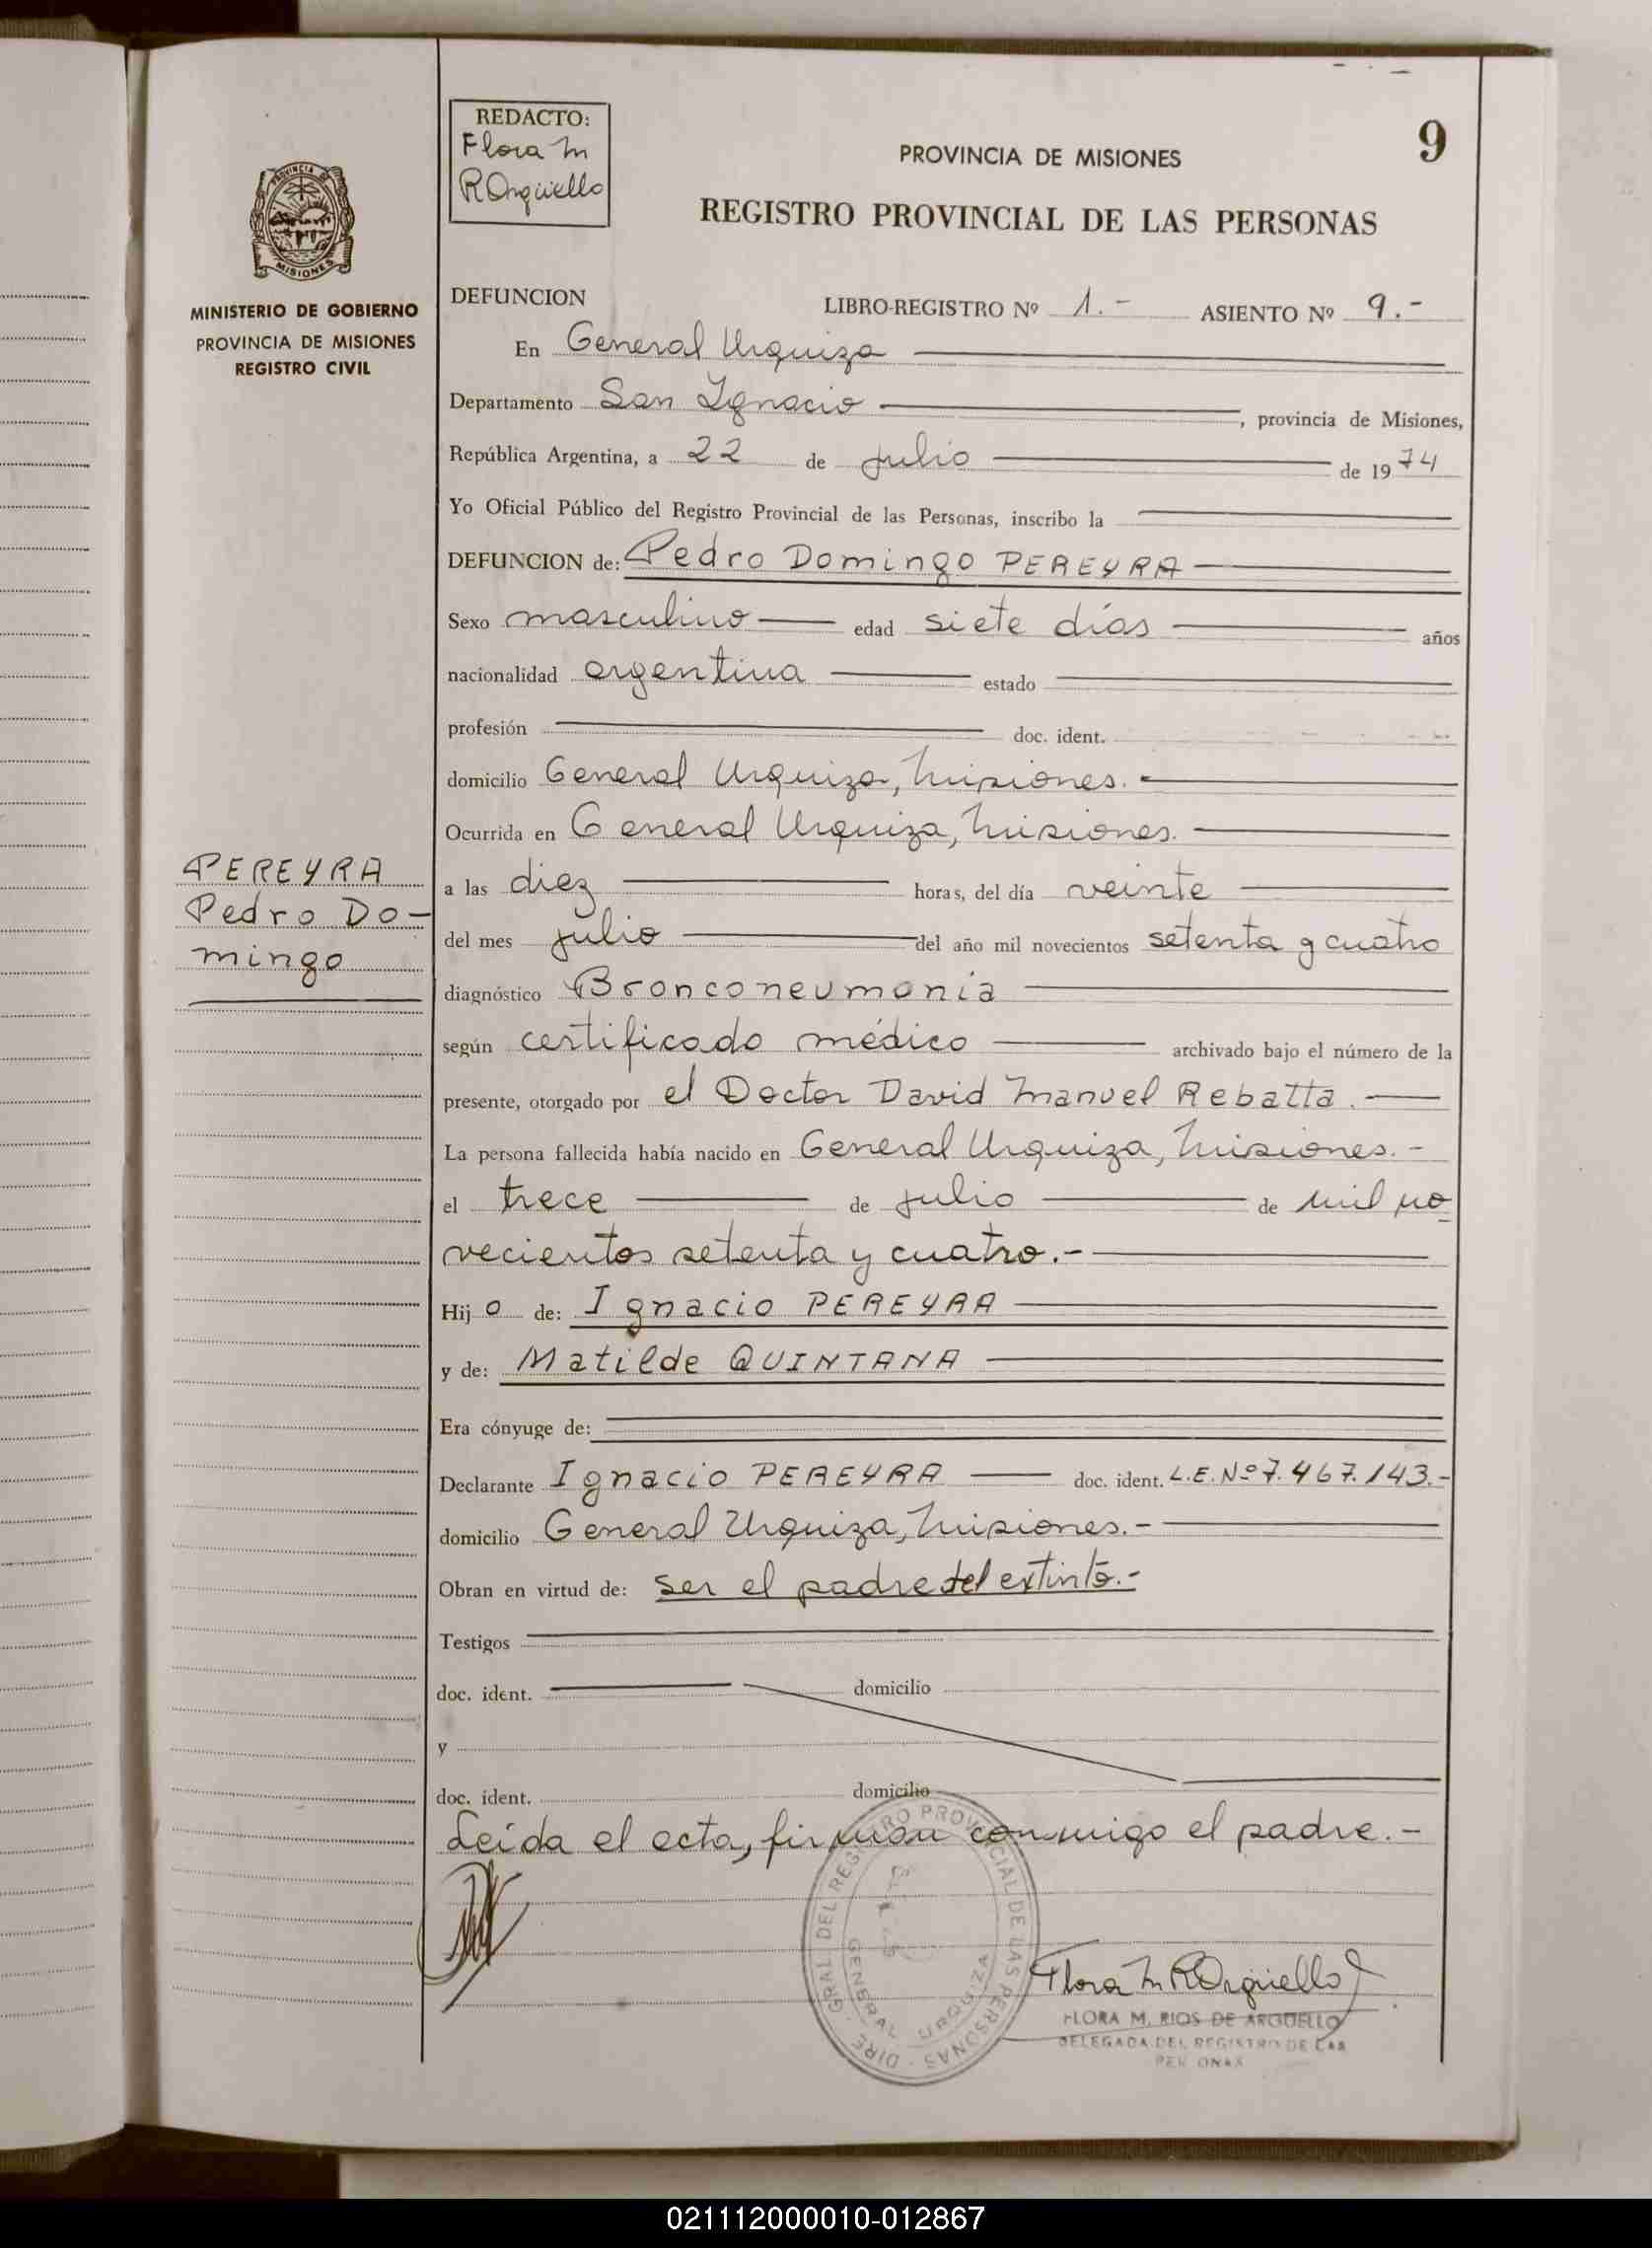 REDACTO:
Flora M
R Argüello
9
PROVINCIA DE MISIONES
REGISTRO PROVINCIAL DE LAS PERSONAS
PROVINCIA DE
MISIONES
MINISTERIO DE GOBIERNO
PROVINCIA DE MISIONES
REGISTRO CIVIL
DEFUNCION LIBRO-REGISTRO Nº 1.- ASIENTO Nº 9.-
En General Urquiza
Departamento San Ignacio, provincia de Misiones,
República Argentina, a 22 de julio de 1974
Yo Oficial Público del Registro Provincial de las Personas, inscribo la
DEFUNCION de: Pedro Domingo PEREYRA
Sexo masculino edad siete días años
nacionalidad argentina estado
profesión doc. ident.
domicilio General Urquiza, Misiones.
Ocurrida en General Urquiza, Misiones.
PEREYRA
Pedro Do-
mingo
a las diez horas, del día veinte
del mes julio del año mil novecientos setenta y cuatro
diagnóstico Bronconeumonia
según certificado médico archivado bajo el número de la
presente, otorgado por el Doctor David Manuel Rebatta.
La persona fallecida había nacido en General Urquiza, Misiones.-
el trece de julio de mil no
vecientos setenta y cuatro.-
Hijo de: Ignacio PEREYRA
y de: Matilde QUINTANA
Era cónyuge de:
Declarante Ignacio PEREYRA doc. ident. L.E. Nº 7.467.143.-
domicilio General Urquiza, Misiones.-
Obran en virtud de: ser el padre del extinto.-
Testigos
doc. ident. domicilio
y
doc. ident. domicilio
Leída el acta, firman conmigo el padre.-
DIRE. GRAL DEL REGISTRO PROVINCIAL DE LAS PERSONAS
GENERAL URQUIZA
Flora M R Argüello
FLORA M. RIOS DE ARGÜELLO
DELEGADA DEL REGISTRO DE LAS
PERSONAS
021112000010-012867